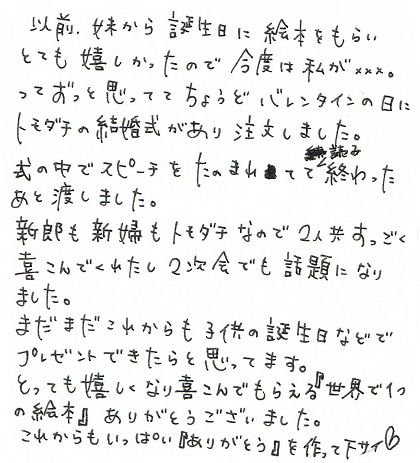 以前、妹から誕生日に絵本をもらい
とても嬉しかったので今度は私が×××。
ってずっと思っててちょうどバレンタインの日に
トモダチの結婚式があり注文しました。
式の中でスピーチをたのまれてて読み終わった
あと渡しました。
新郎も新婦もトモダチなので2人共すっごく
喜こんでくれたし2次会でも話題になり
ました。
まだまだこれからも子供の誕生日などで
プレゼントできたらと思ってます。
とっても嬉しくなり喜こんでもらえる『世界で1つ
の絵本』ありがとうございました。
これからもいっぱい『ありがとう』を作って下サイ